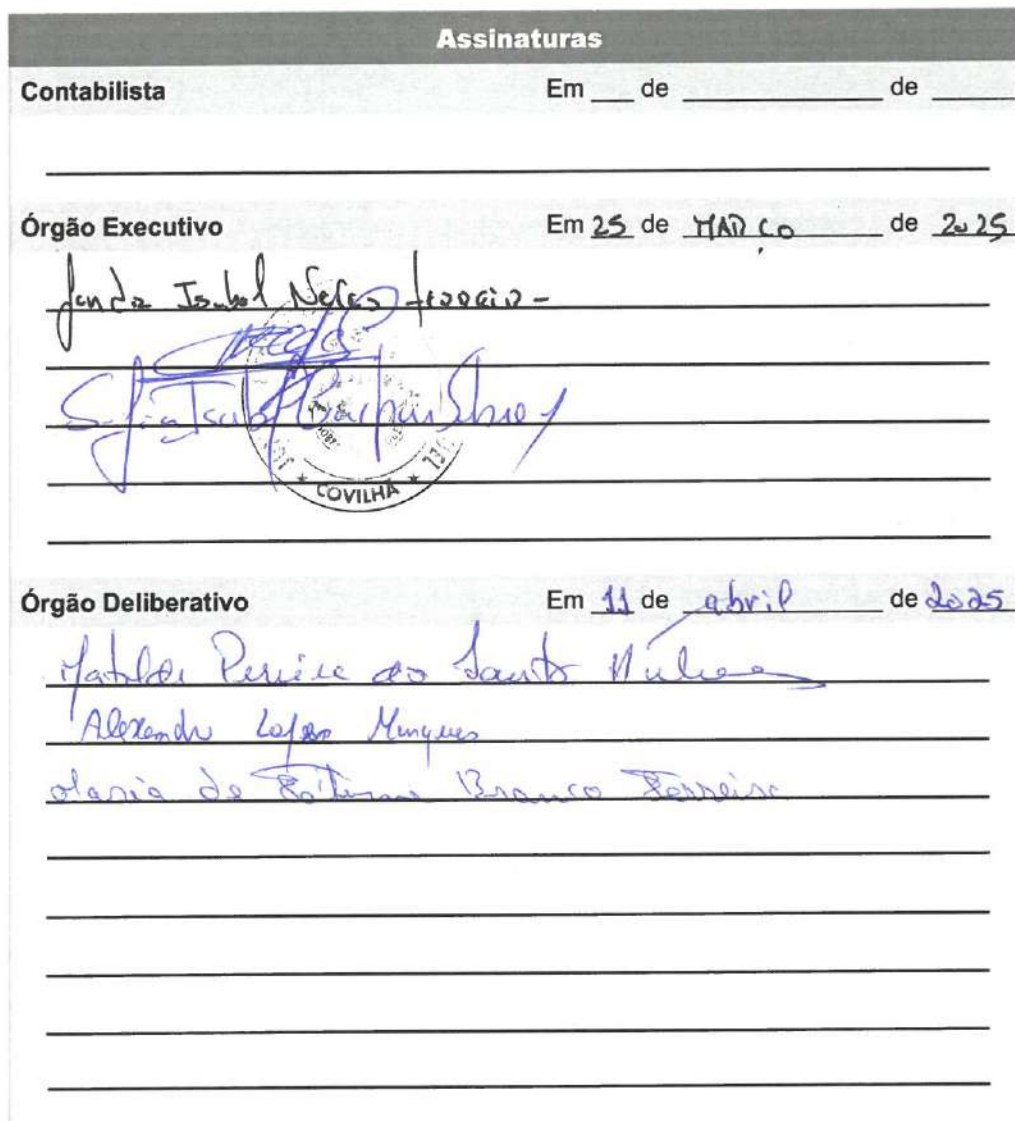 Assinaturas
Contabilista Em ___ de ___ de ___
Órgão Executivo Em 25 de MARÇO de 2025
Isabel Neves
COVILHÃ
Órgão Deliberativo Em 11 de abril de 2025
Matilde Pereira do Santo
Alexandre Lopes
Maria de Fátima Branco Ferreira